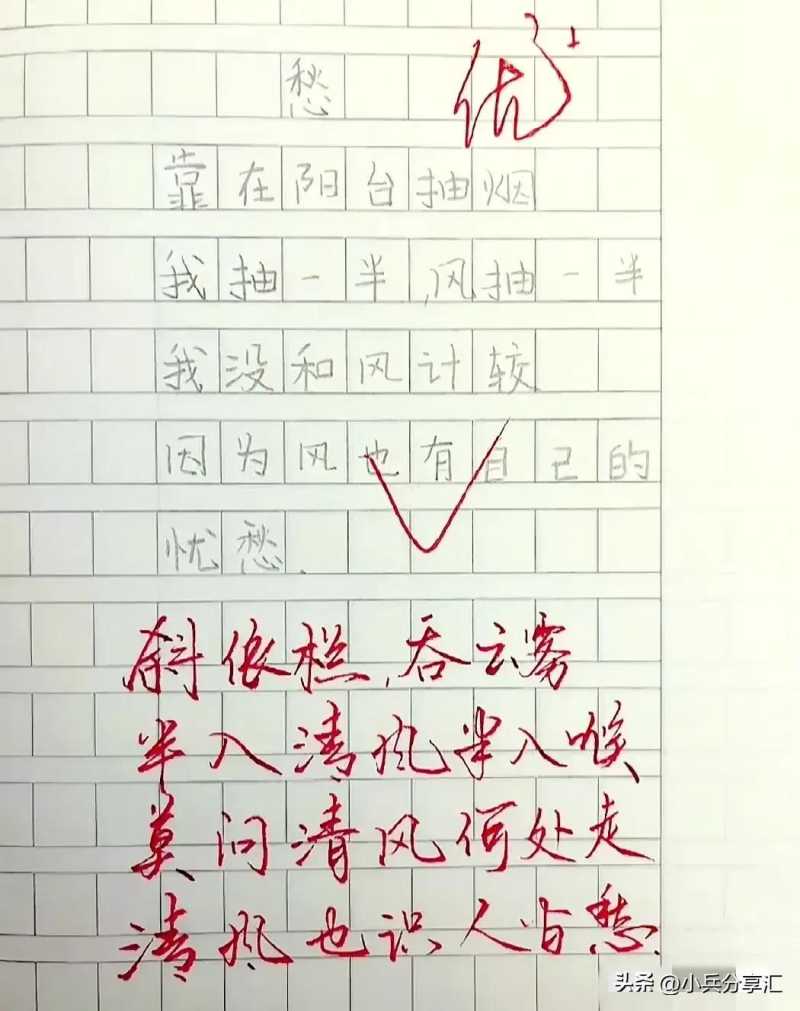 愁
优+
靠在阳台抽烟
我抽一半,风抽一半
我没和风计较
因为风也有自己的
忧愁.
斜依栏,吞云雾
半入清风半入喉
莫问清风何处走
清风也识人皆愁.
头条 @小兵分享汇